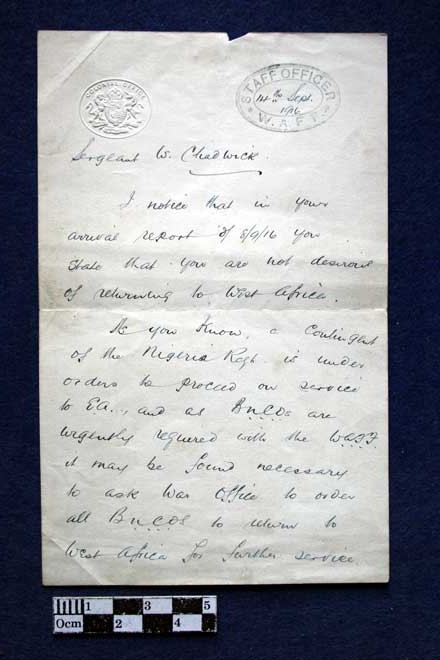 COLONIAL OFFICE
STAFF OFFICER
14th Sept.
1916
W.A.F.F.
Sergeant W. Chadwick.
I notice that in your
arrival report of 8/9/16 you
state that you are not desirous
of returning to West Africa.
As you know, a Contingent
of the Nigeria Regt. is under
orders to proceed on service
to E.A., and as BNCOs are
urgently required with the WAFF
it may be found necessary
to ask War Office to order
all BNCOs to return to
West Africa for further service
0cm 1 2 3 4 5